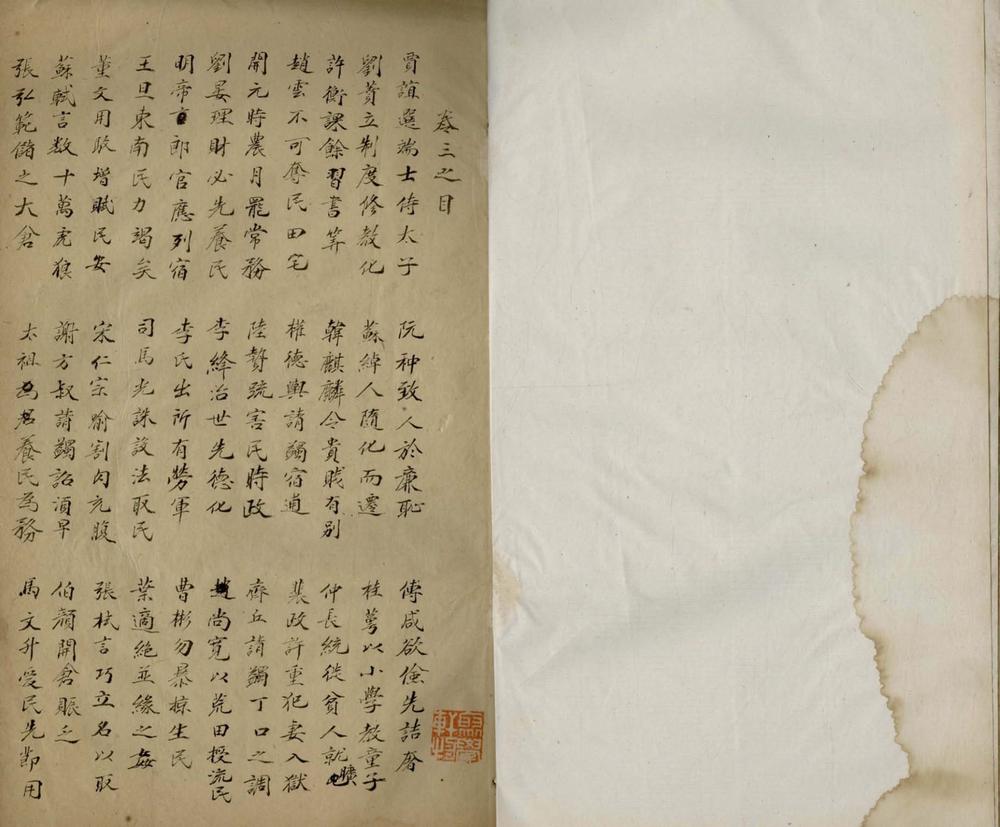 卷三之目
賈誼選端士侍太子　阮种致人於廉恥　傅咸欲儉先詰奢
劉蕡立制度修教化　蘇綽人隨化而遷　桂萼以小學教童子
許衡課餘習書筭　韓麒麟令貴賤有別　仲長統徙貧人就曠
趙雲不可奪民田宅　權德輿請蠲宿逋　裴政許重犯妻入獄
開元時農月罷常務　陸贄疏害民時政　齊丘請蠲丁口之調
劉晏理財必先養民　李絳治世先德化　趙尚寬以荒田授流民
明帝言郎官應列宿　李氏出所有勞軍　曹彬勿暴掠生民
王旦東南民力竭矣　司馬光誅設法取民　葉適絕並緣之姦
董文用增賦民安　宋仁宗喻割肉充腹　張栻言巧立名以取
蘇軾言数十萬虎狼　謝方叔請蠲詔須早　伯顏開倉賑乏
張弘範儲之大倉　太祖為君養民為務　馬文升愛民先節用